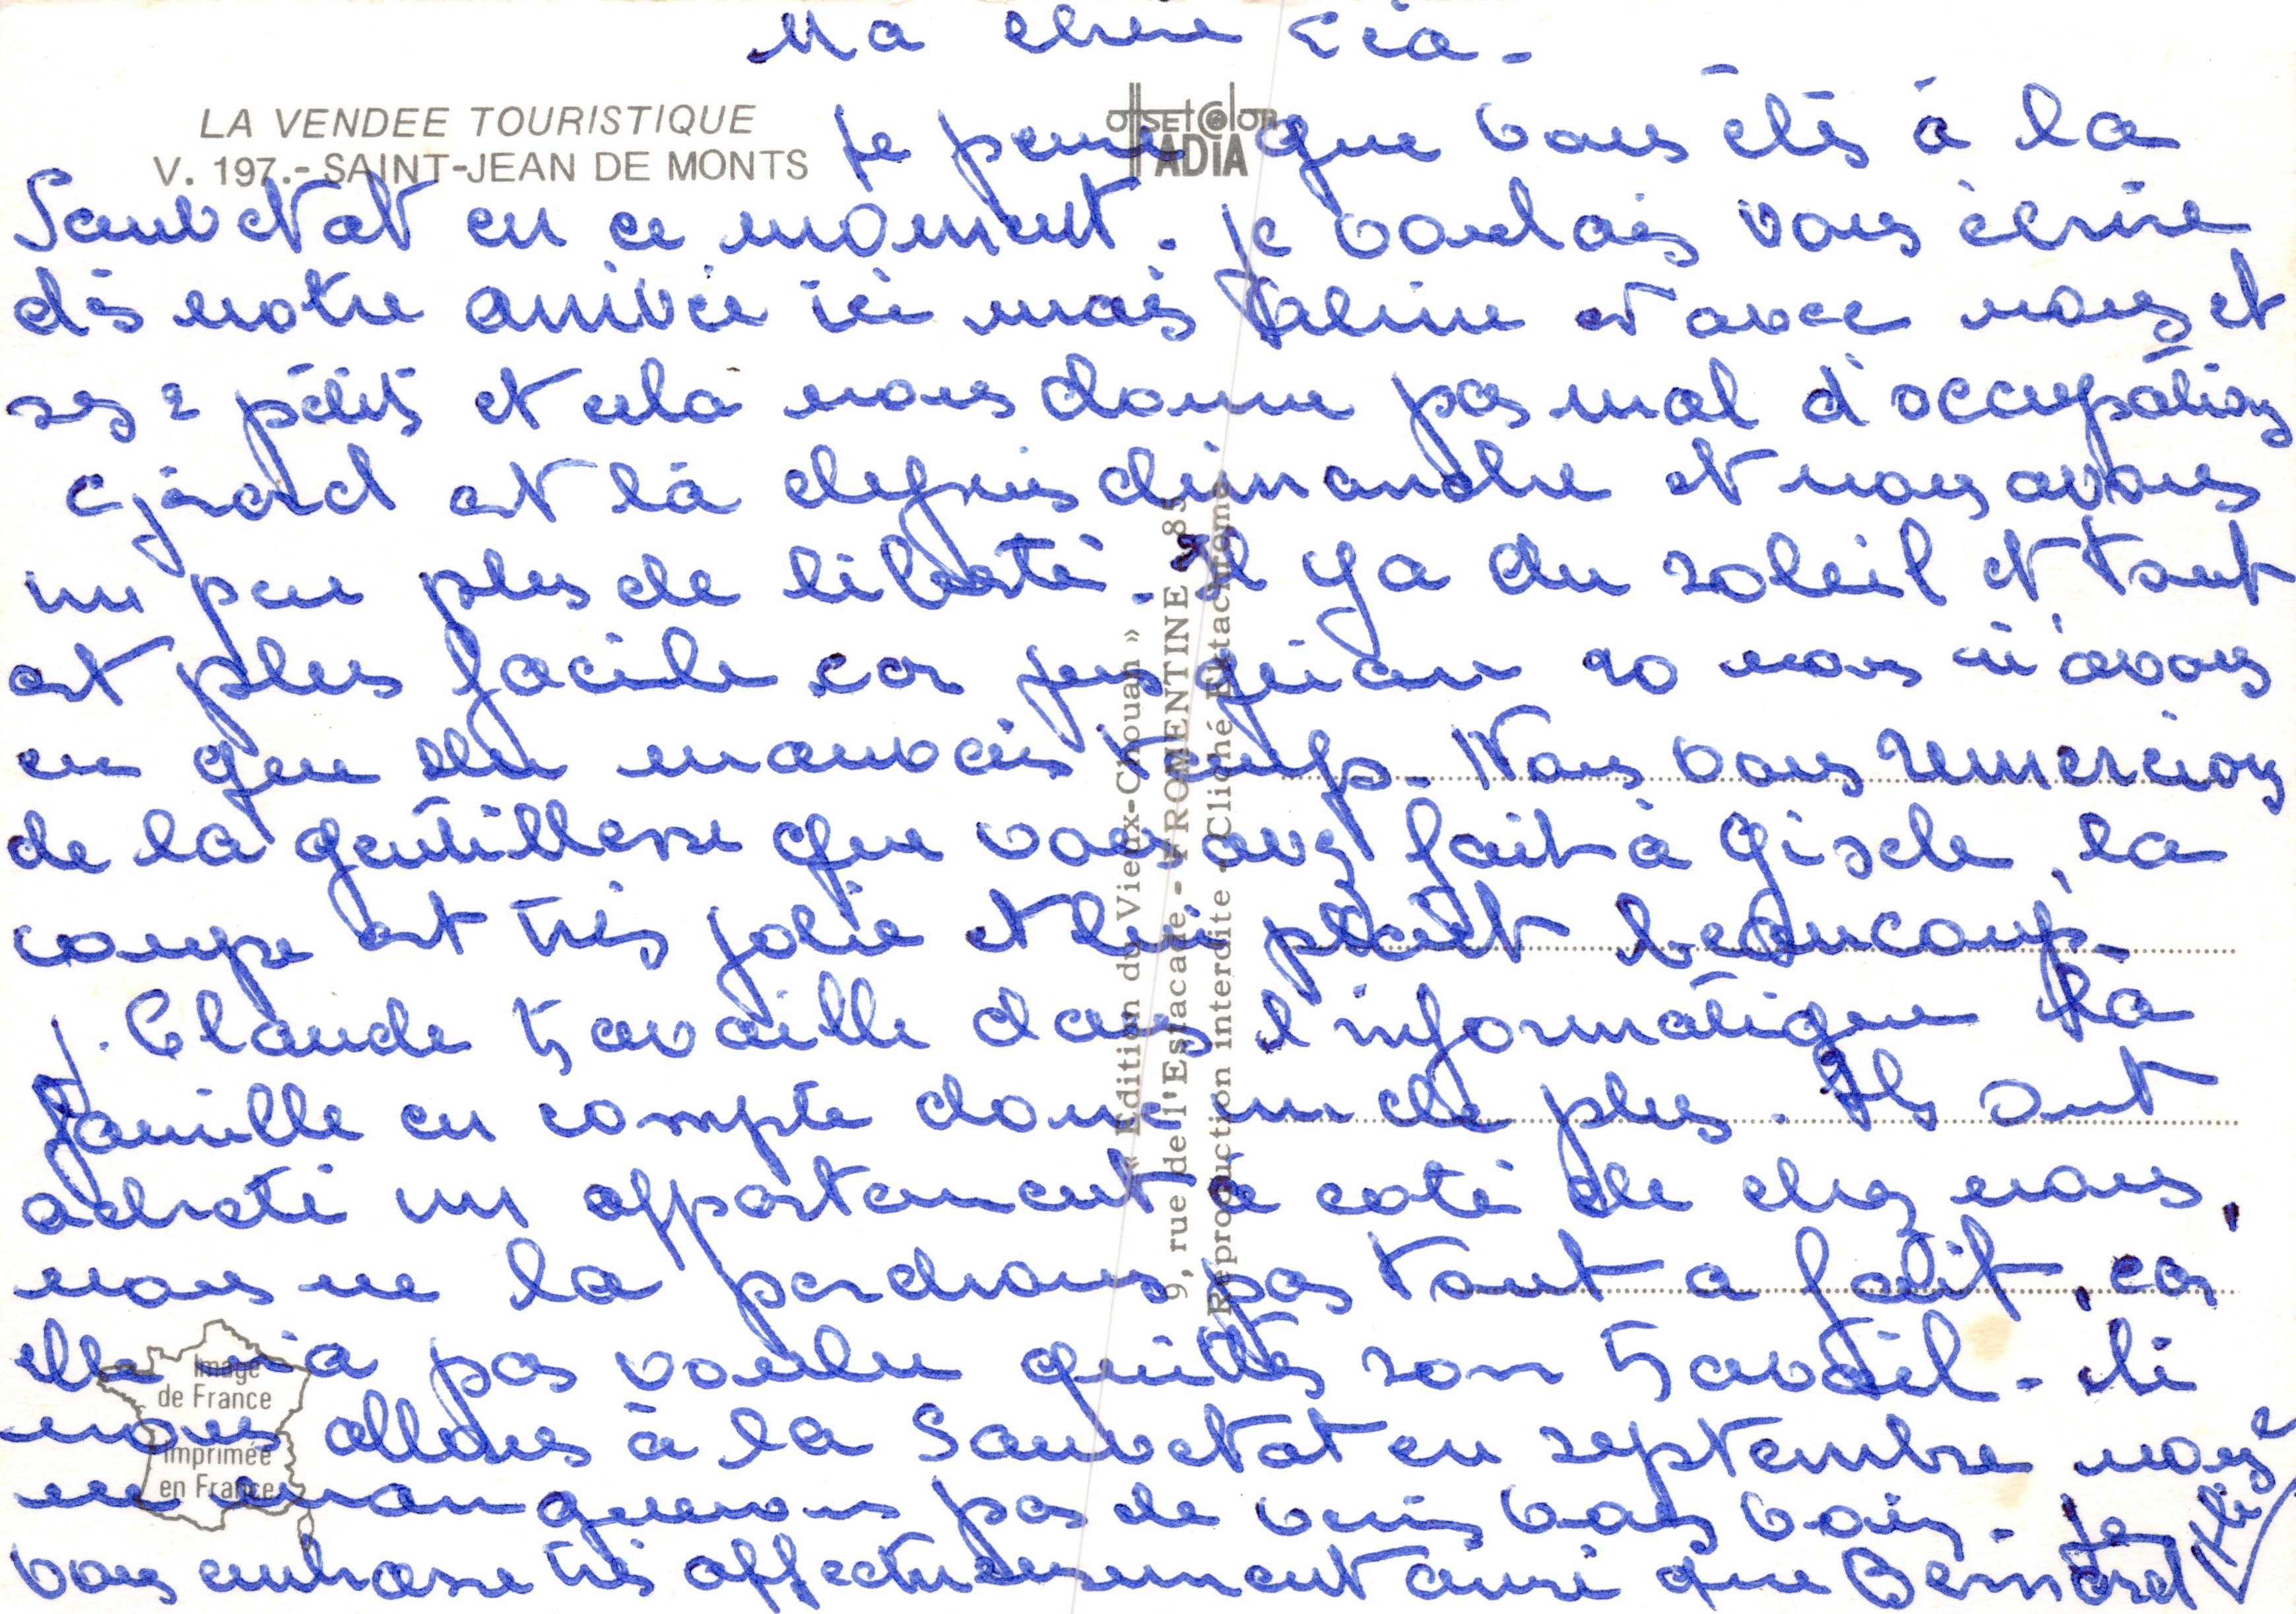 Ma chère Lia -
LA VENDEE TOURISTIQUE
V. 197.- SAINT-JEAN DE MONTS
offset color
JADIA
Je pense que vous êtes à la
Sauvetat en ce moment. Je voulais vous écrire
dès notre arrivée ici mais est avec nous et
ses 2 petits et cela nous donne pas mal d'occupations
Gérard est là depuis dimanche et nous avons
un peu plus de liberté. Il y a du soleil et tout
est plus facile car jusqu'au 20 nous n'avons
eu que du mauvais temps. Nous vous remercions
de la gentillesse que vous avez fait à Gisèle, la
coupe est très jolie et lui plaît beaucoup.
J. Claude travaille dans l'informatique la
famille en compte donc un de plus. Ils ont
acheté un appartement à coté de chez nous,
nous ne la perdrons pas tout a fait, car
elle n'a pas voulu quitter son travail - Si
nous allons à la Sauvetat en septembre nous
ne manquerons pas de venir vous voir. Je
vous embrasse très affectueusement ainsi que Bernard
« Edition du Vieux-Chouan »
9, rue de l'Estacade - FROMENTINE - 85
Reproduction interdite - Cliché Ektachrome
Image
de France
Imprimée
en France